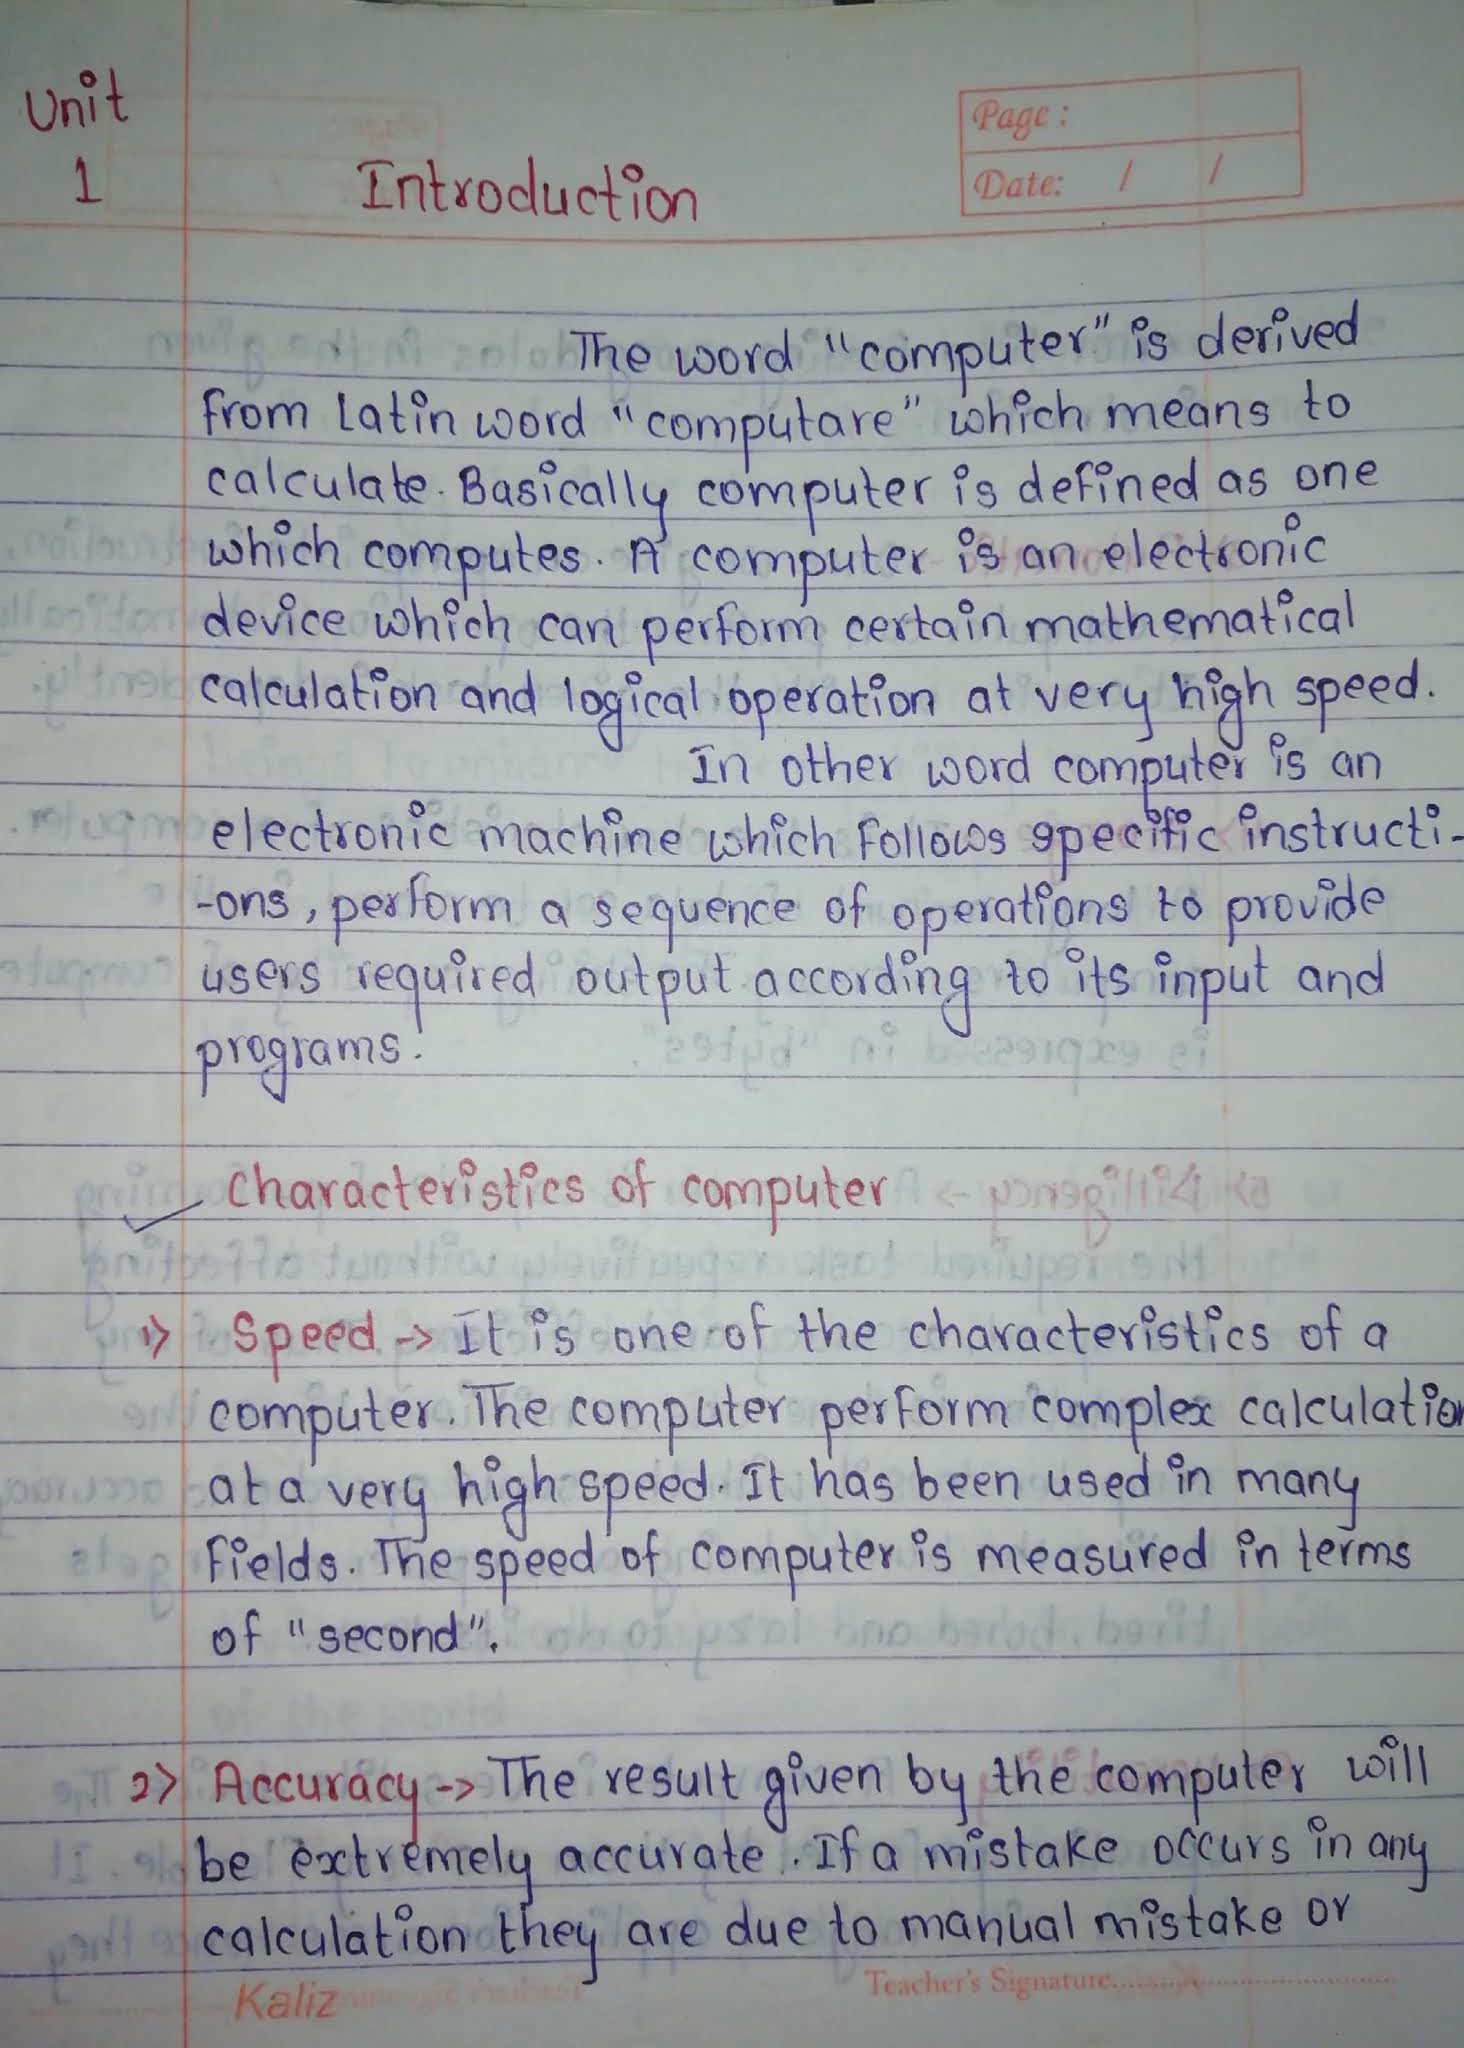 Unit
1
Introduction
Page :
Date: / /
The word "computer" is derived
from Latin word "computare" which means to
calculate. Basically computer is defined as one
which computes. A computer is an electronic
device which can perform certain mathematical
calculation and logical operation at very high speed.
In other word computer is an
electronic machine which follows specific instructi-
-ons, perform a sequence of operations to provide
users required output according to its input and
programs.
Characteristics of computer
1> Speed -> It is one of the characteristics of a
computer. The computer perform complex calculation
at a very high speed. It has been used in many
fields. The speed of computer is measured in terms
of "second".
2> Accuracy -> The result given by the computer will
be extremely accurate. If a mistake occurs in any
calculation they are due to manual mistake or
Kaliz
Teacher's Signature